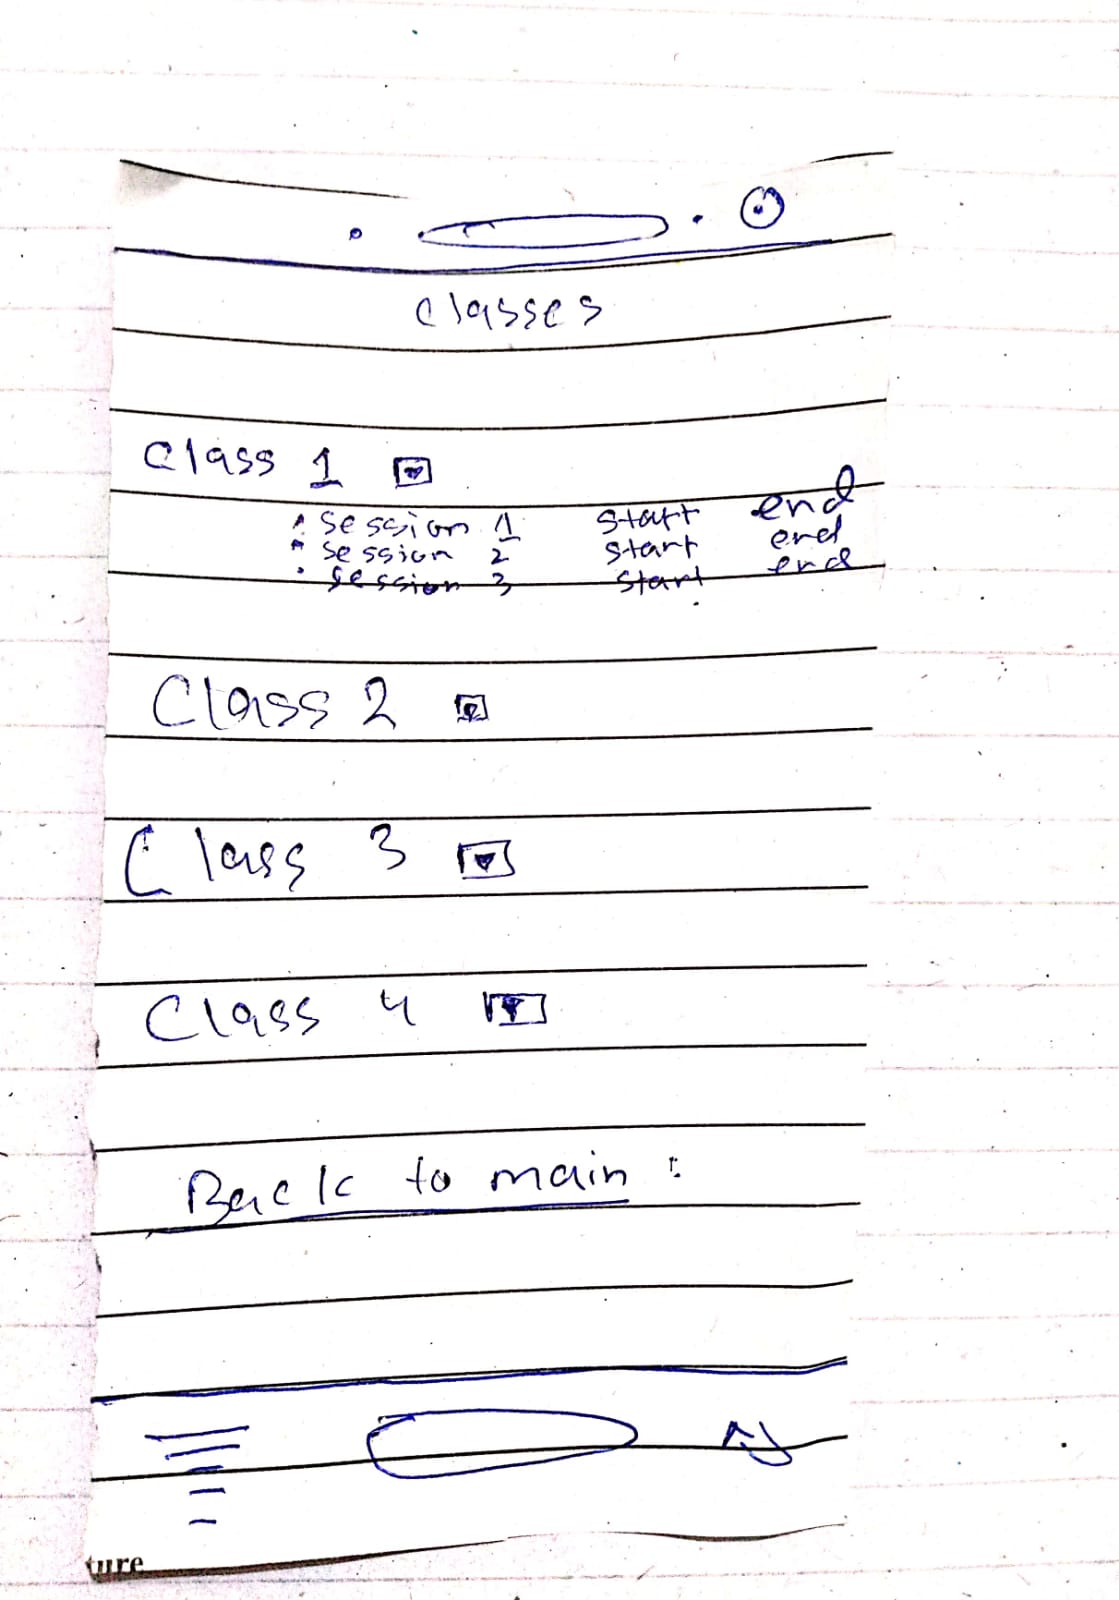 Classes
Class 1
Session 1 start end
Session 2 start end
Session 3 start end
Class 2
Class 3
Class 4
Back to main :
ture